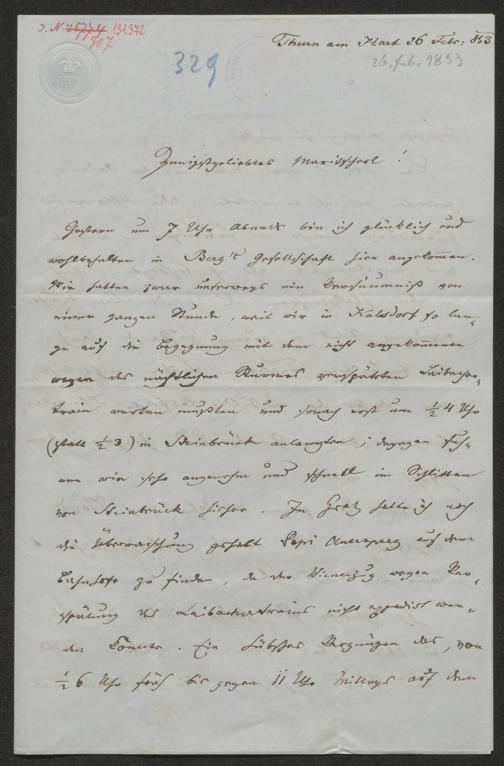 J. N. 131372
507
329
Thurn am Hart 26 Febr: 853
26. Feb. 1853
Innigstgeliebtes Mariescherl!
Gestern um 7 Uhr Abends bin ich glücklich und
wohlbehalten in Berg's Gesellschaft hier angekommen.
Wir hatten zwar unterwegs ein Versäumniß von
einer ganzen Stunde, weil wir in Kalsdorf so lan-
ge auf die Begegnung mit dem nicht angekommenen
wegen des nächtlichen Sturmes verspäteten Laibacher-
train warten mußten und sonach erst um ½ 4 Uhr
(statt ½ 3) in Steinbrück anlangten; dagegen fuh-
ren wir sehr angenehm und schnell im Schlitten
von Steinbrück hieher. In Gratz hatte ich noch
die Überraschung gehabt Pepi Auersperg auf dem
Bahnhofe zu finden, da der Wienerzug wegen Ver-
spätung des Laibachertrains nicht expedirt wer-
den konnte. Ein hübsches Vergnügen das, von
½ 6 Uhr früh bis gegen 11 Uhr Mittags auf dem